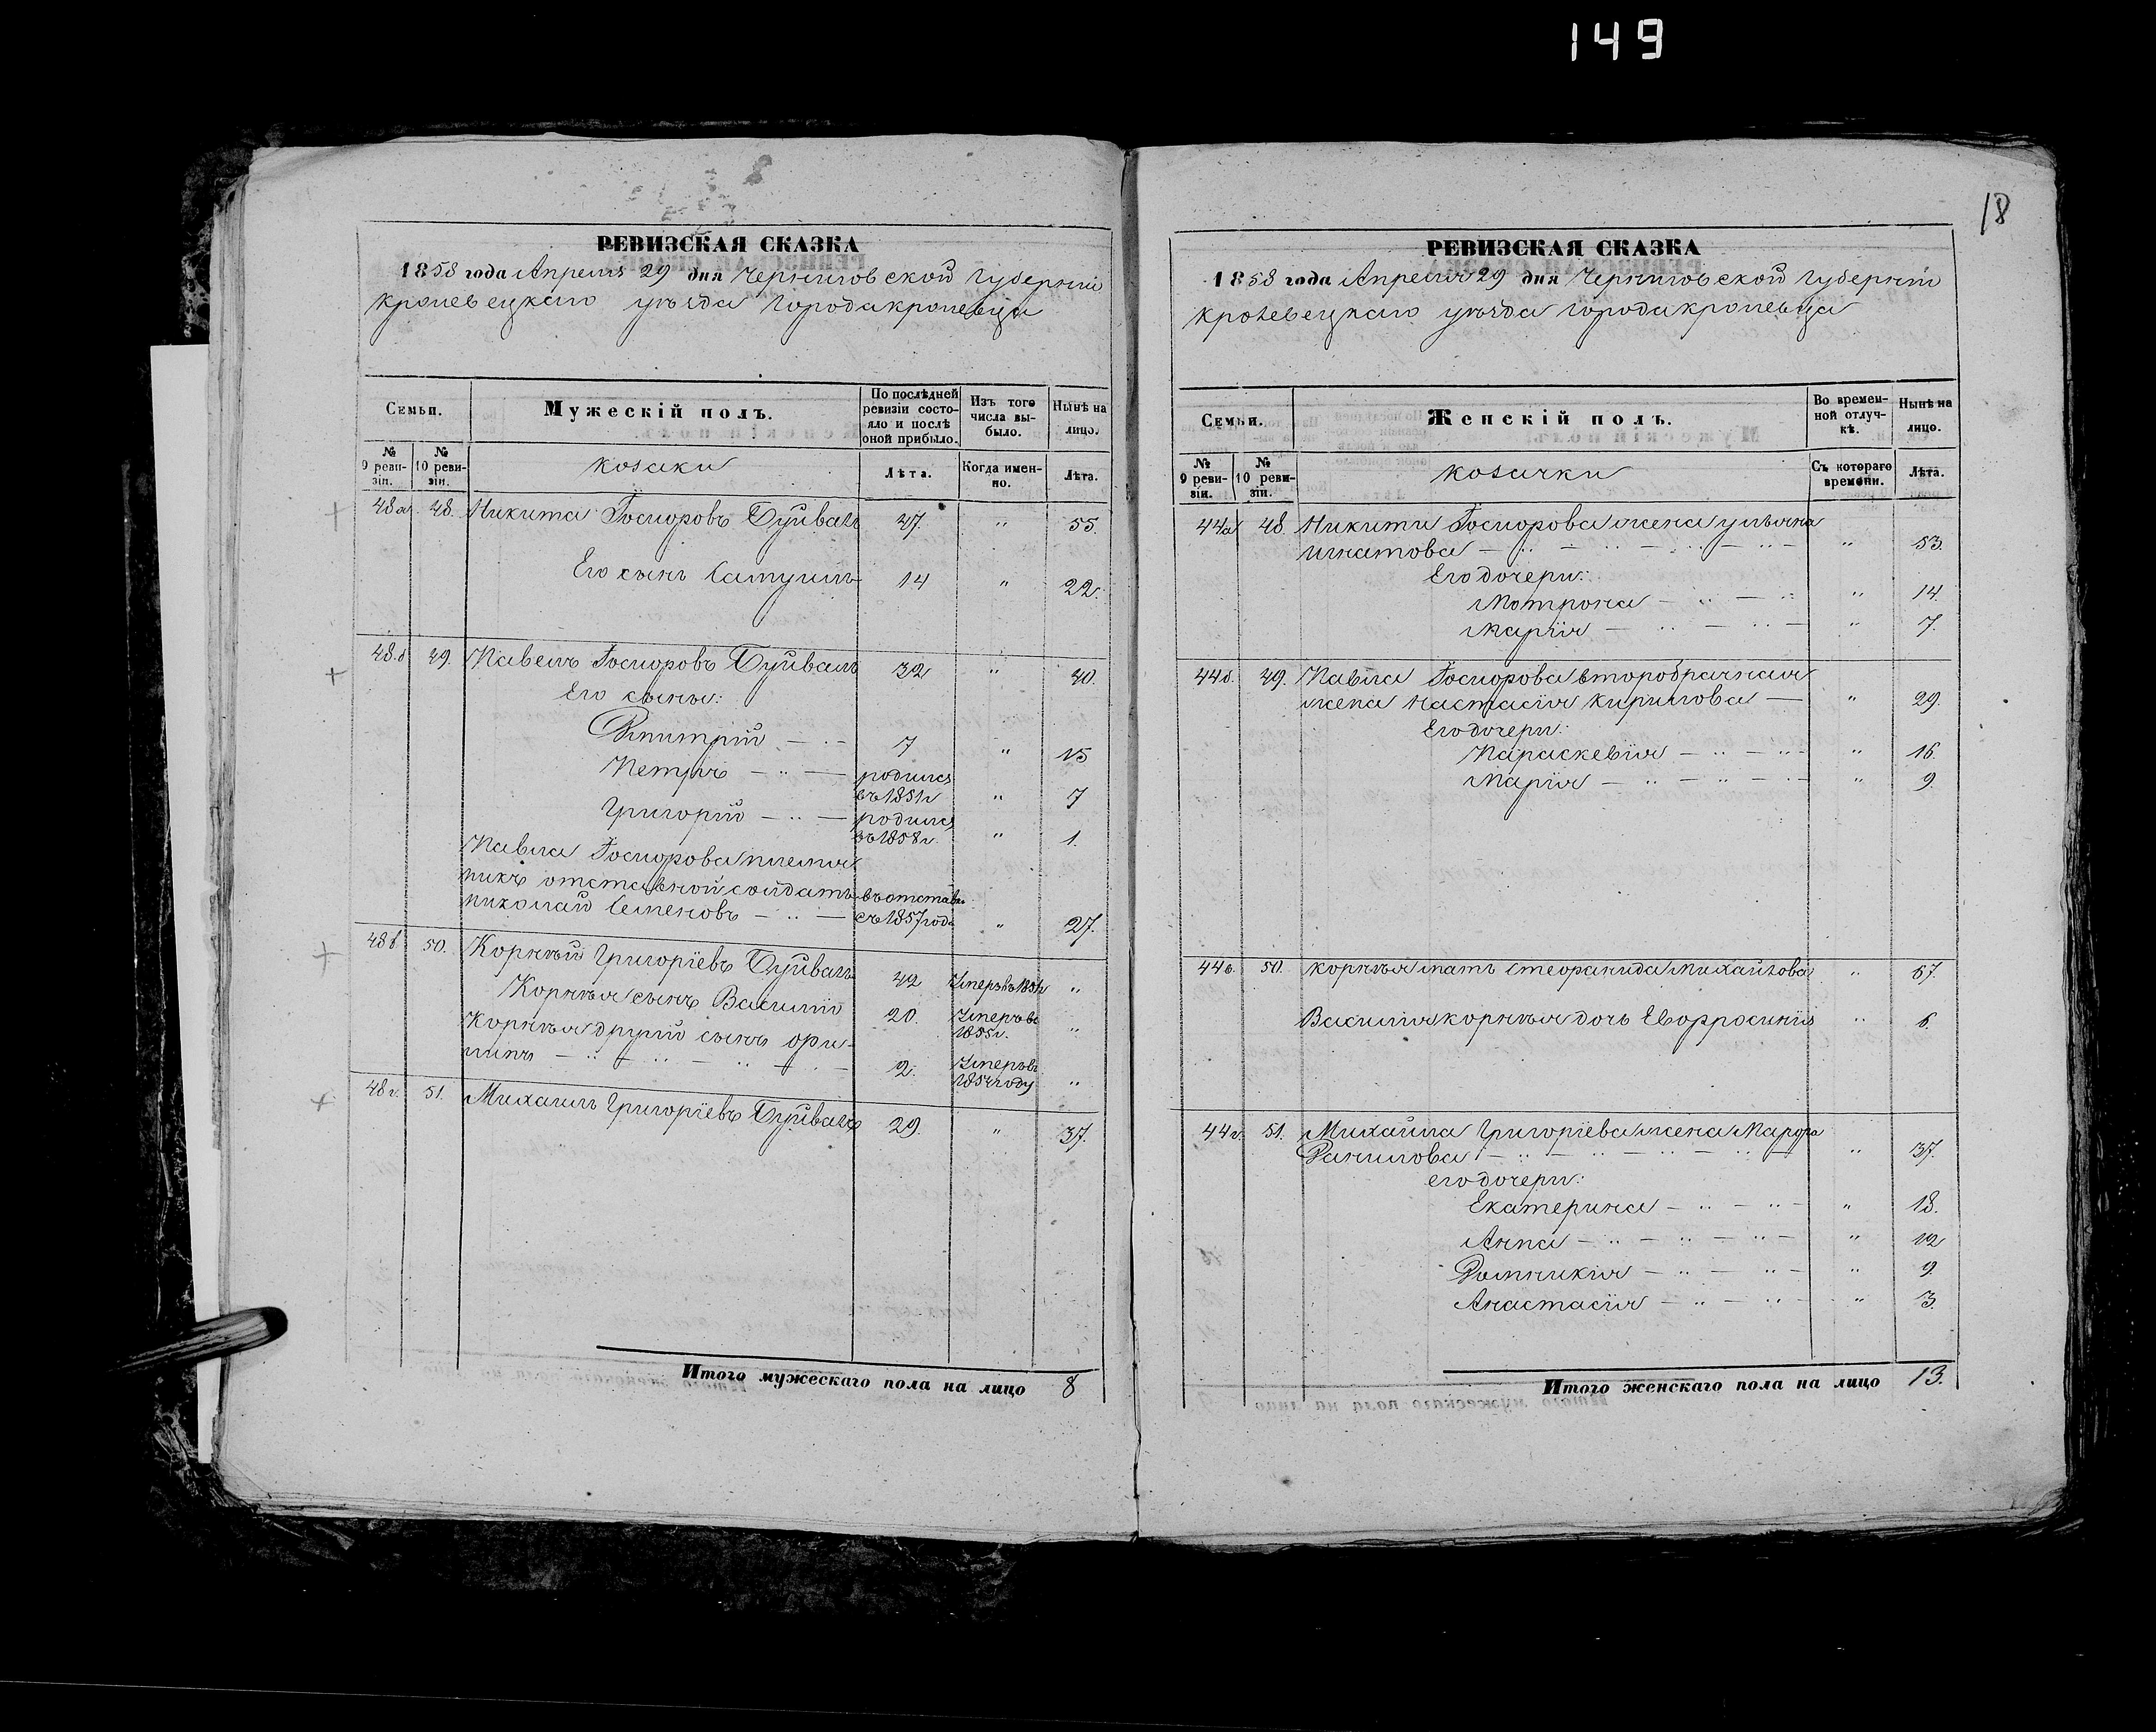 149
18
РЕВИЗСКАЯ СКАЗКА
1858 года Апреля 29 дня Черниговской Губерніи
кролевецкаго уѣзда города кролевца
Семьи.
Мужескій полъ.
По послѣдней ревизіи состояло и послѣ оной прибыло.
Изъ того числа выбыло.
Нынѣ на лицо.
№ 9 ревизіи.
№ 10 ревизіи.
козаки
Лѣта.
Когда именно.
Лѣта.
48а 48. Никита Госифоровъ Буйвалъ 47. " 55.
Его сынъ Самуилъ 14 " 22.
48.б 49. Павелъ Буйвалъ 32 " 40.
Его сыны:
Дмитрій — 7 " 15
Петръ — родился въ 1851г " 7
Григорій — родился въ 1858г. " 1.
Павла племян
никъ отставной солдатъ въ отставк.
николай Семеновъ — съ 1857 года " 27.
48в 50. Корнѣй Григоріевъ Буйвалъ 42 Умеръ въ 1851г "
Корнѣя сынъ Василій 20. Умеръ въ 1855г. "
Корнѣя другій сынъ фи-
липъ — 2. Умеръ въ 1854 году "
48г. 51. Михаилъ Григоріевъ Буйвалъ 29. " 37.
Итого мужескаго пола на лицо 8
РЕВИЗСКАЯ СКАЗКА
1858 года Апреля 29 дня Черниговской Губерніи
кролевецкаго уѣзда города кролевца
Семьи.
Женскій полъ.
Во временной отлучкѣ.
Нынѣ на лицо.
№ 9 ревизіи.
№ 10 ревизіи.
козачки
Съ котораго времени.
Лѣта.
44а 48. Никиты жена ульяна
игнатова — " 53.
Его дочери:
Мотрона — " 14.
Марія — " 7.
44б. 49. Павла второбрачная
жена настасія кирилова — " 29.
Его дочери:
Параскевія — " 16.
Марія — " 9.
44в. 50. корнѣя мать стефанида Михайлова " 67.
Василия корнѣя дочь Евфросинія " 6.
44г. 51. Михайла Григоріева жена Марфа
Данилова — " 37.
его дочери:
Екатерина — " 18.
Анна — " 12
Домникія — " 9.
Анастасія — " 3.
Итого женскаго пола на лицо 13.